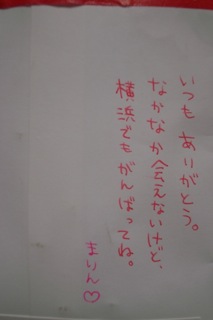 いつも ありがとう。
なかなか会えないけど、
横浜でもがんばってね。
まりん♡